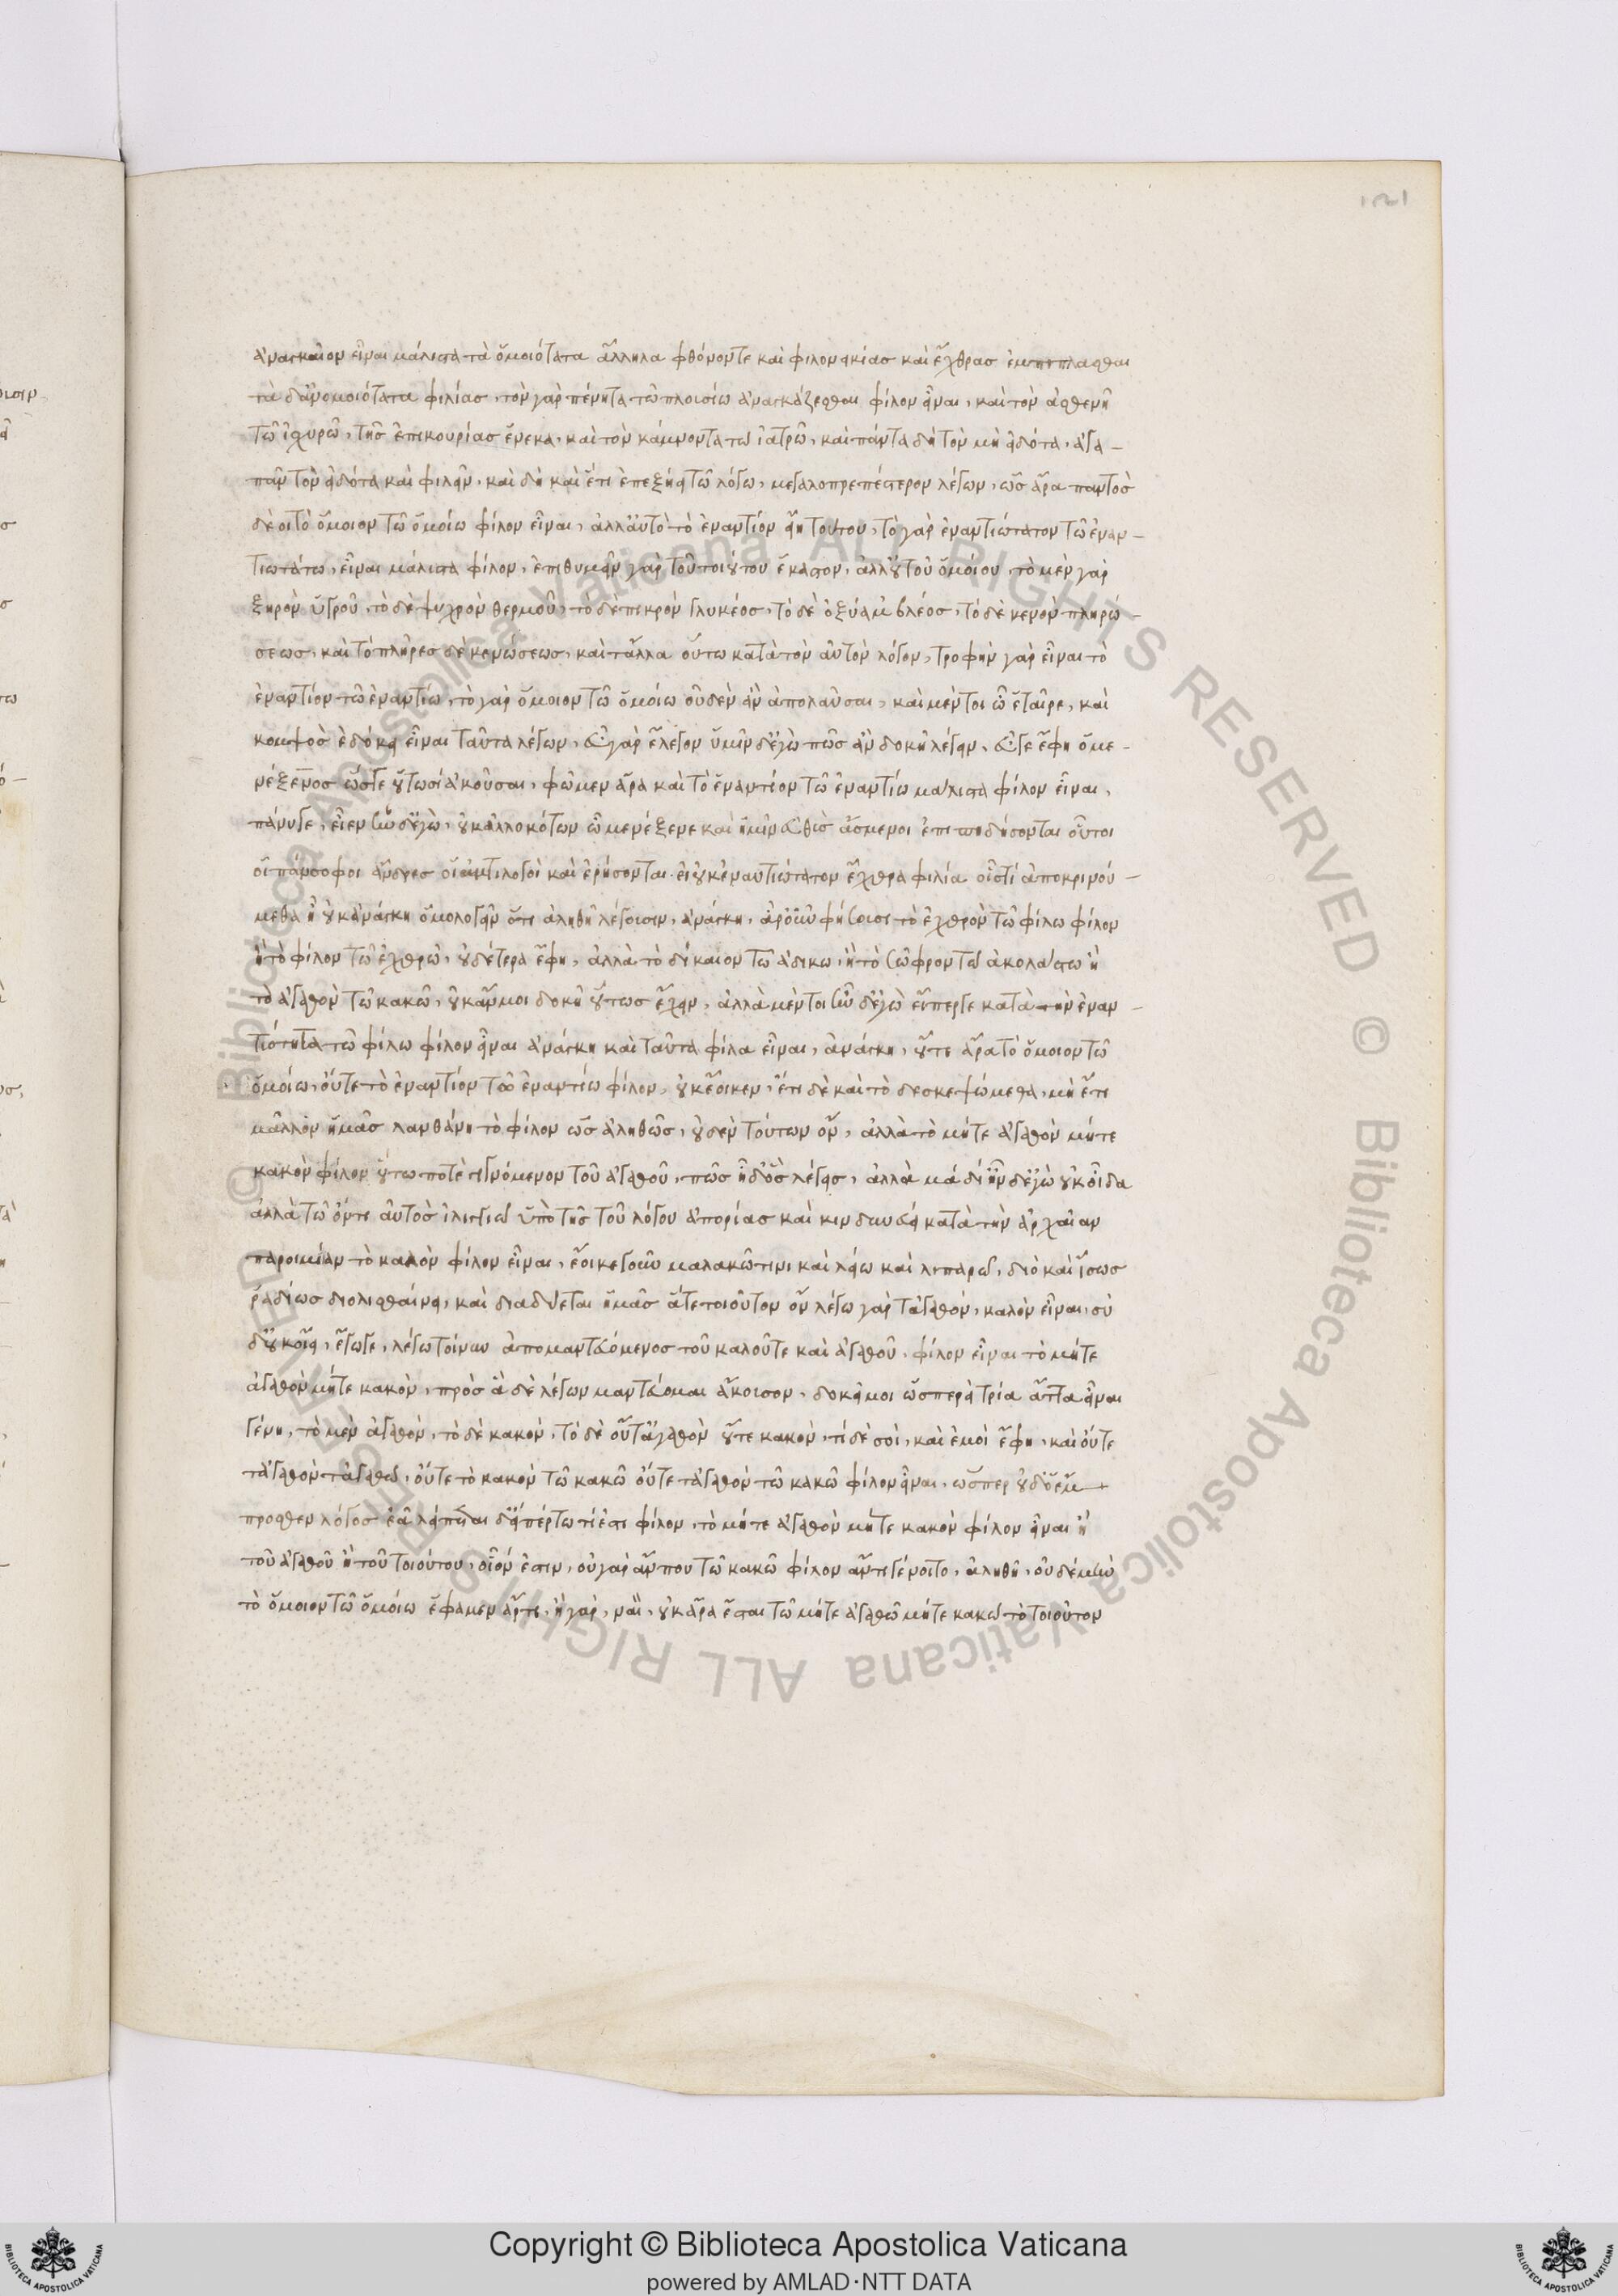 121
ἀναγκαῖον εἶναι μάλιστα τὰ ὅμοιότατα ἄλληλα φθόνου τε καὶ φιλονεικίας καὶ ἔχθρας ἐμπιπλασθαι
τὰ δ' ἀνομοιότατα φιλίας, τὸν γὰρ πένητα τῶ πλουσίω ἀναγκάζεσθαι φίλον εἶναι, καὶ τὸν ἀσθενῆ
τῶ ἰσχυρῶ, τῆς ἐπικουρίας ἕνεκα, καὶ τὸν κάμνοντα τω ἰατρῶ, καὶ πάντα δὴ τὸν μὴ εἰδότα, ἀγα-
πᾶν τὸν εἰδότα καὶ φιλεῖν, καὶ δὴ καὶ ἔτι ἐπεξῄει τῶ λόγω, μεγαλοπρεπέστερον λέγων, ὡς ἄρα παντὸς
δέοι τὸ ὅμοιον τῶ ὁμοίω φίλον εἶναι, ἀλλ' αὐτὸ τὸ ἐναντίον εἴη τούτου, τὸ γὰρ ἐναντιώτατον τῶ ἐναν-
τιωτάτω, εἶναι μάλιστα φίλον, ἐπιθυμεῖν γὰρ τοῦ τοιούτου ἕκαστον, ἀλλ' οὐ τοῦ ὁμοίου, τὸ μὲν γὰρ
ξηρὸν ὑγροῦ, τὸ δὲ ψυχρὸν θερμοῦ, τὸ δὲ πικρὸν γλυκέος, τὸ δὲ ὀξὺ ἀμβλέος, τό δὲ κενὸν πληρώ-
σεως, καὶ τὸ πλῆρες δὲ κενώσεως, καὶ τἄλλα οὕτω κατὰ τὸν αὐτὸν λόγον, τροφὴν γὰρ εἶναι τὸ
ἐναντίον τῶ ἐναντίω, τὸ γὰρ ὅμοιον τῶ ὁμοίω οὐδὲν ἂν ἀπολαῦσαι, καὶ μέντοι ὦ ἑταῖρε, καὶ
κομψὸς ἐδόκει εἶναι ταῦτα λέγων, εὖ γὰρ ἔλεγον ὑμῖν δ' ἐγὼ πῶς ἂν δοκῇ λέγειν, εὖ γε ἔφη ὁ με-
νέξενος ὥστε οὑτωσὶ ἀκοῦσαι, φῶμεν ἄρα καὶ τὸ ἐναντίον τῶ ἐναντίω μάλιστα φίλον εἶναι,
πάνυ γε, εἶεν ἦν δ' ἐγὼ, οὐκ ἀλλοκότων ὦ μενέξενε καὶ ἡμῖν εὐθὺς ἄσμενοι ἐπιπηδήσονται οὗτοι
οἱ πάνσοφοι ἄνδρες οἱ ἀντιλογοὶ καὶ ἐρήσονται. εἰ οὐκ ἐναντιώτατον ἔχθρα φιλία οἷς τί ἀποκρινού-
μεθα ἢ οὐκ ἀνάγκη ὁμολογεῖν ὅτι ἀληθῆ λέγουσιν, ἀνάγκη, ἆρ' οὖν φήσουσι τὸ ἐχθρὸν τῶ φίλω φίλον
ἢ τὸ φίλον τῶ ἐχθρῶ, οὐδέτερα ἔφη, ἀλλὰ τὸ δίκαιον τῶ ἀδίκω, ἢ τὸ σῶφρον τῶ ἀκολάστω ἢ
τὸ ἀγαθὸν τῶ κακῶ, οὐκ ἄν μοι δοκῇ οὕτως ἔχειν, ἀλλὰ μέντοι ἦν δ' ἐγὼ εἴπερ γε κατὰ τὴν ἐναν-
τιότητα τῶ φίλω φίλον εἶναι ἀνάγκη καὶ ταῦτα φίλα εἶναι, ἀνάγκη, οὔτε ἄρα τὸ ὅμοιον τῶ
ὁμοίω, οὔτε τὸ ἐναντίον τῶ ἐναντίω φίλον, οὐκ ἔοικεν, ἔτι δὲ καὶ τὸ δε σκεψώμεθα, μὴ ἔτι
μᾶλλον ἡμᾶς λανθάνῃ τὸ φίλον ὡς ἀληθῶς, οὐδὲν τούτων ὂν, ἀλλὰ τὸ μήτε ἀγαθὸν μήτε
κακὸν φίλον οὕτω ποτὲ γιγνόμενον τοῦ ἀγαθοῦ, πῶς ἦ δ' ὃς λέγεις, ἀλλὰ μὰ δί' ἦν δ' ἐγὼ οὐκ οἶδα
ἀλλὰ τῶ ὄντι αὐτὸς ἰλιγγιῶ ὑπὸ τῆς τοῦ λόγου ἀπορίας καὶ κινδυνεύει κατὰ τὴν ἀρχαῖαν
παροιμίαν τὸ καλὸν φίλον εἶναι, ἔοικε γοῦν μαλακῶ τινι καὶ λείω καὶ λιπαρῶ, διὸ καὶ ἴσως
ῥαδίως διολισθαίνει, καὶ διαδύεται ἡμᾶς ἅτε τοιοῦτον ὂν λέγω γὰρ τἀγαθὸν, καλὸν εἶναι, σὺ
δ' οὐκ οἴει, ἔγωγε, λέγω τοίνυν ἀπομαντευόμενος τοῦ καλοῦ τε καὶ ἀγαθοῦ, φίλον εἶναι τὸ μήτε
ἀγαθὸν μήτε κακὸν, πρὸς ἃ δὲ λέγων μαντεύομαι ἄκουσον, δοκεῖ μοι ὡσπερεὶ τρία ἄττα εἶναι
γένη, τὸ μὲν ἀγαθὸν, τὸ δὲ κακὸν, τὸ δὲ οὔτ' ἀγαθὸν οὔτε κακὸν, τί δὲ σοὶ, καὶ ἐμοὶ ἔφη, καὶ οὔτε
τἀγαθὸν τἀγαθῶ, οὔτε τὸ κακὸν τῶ κακῶ οὔτε τἀγαθὸν τῶ κακῶ φίλον εἶναι, ὥσπερ οὐδ' ὁ ἔμ-
προσθεν λόγος ἐᾶ λείπεται δ' εἴπέρ τω τί ἐστι φίλον, τὸ μήτε ἀγαθὸν μήτε κακὸν φίλον εἶναι ἢ
τοῦ ἀγαθοῦ ἢ τοῦ τοιούτου, οἷόν ἐστιν, οὐ γὰρ ἄν που τῶ κακῶ φίλον ἄν τι γένοιτο, ἀληθῆ, οὐδὲ μὴν
τὸ ὅμοιον τῶ ὁμοίω ἔφαμεν ἄρτι, ἦ γάρ, ναὶ, οὐκ ἄρα ἔσται τῶ μήτε ἀγαθῶ μήτε κακῶ τὸ τοιοῦτον
© Biblioteca Apostolica Vaticana ALL RIGHTS RESERVED © Biblioteca Apostolica Vaticana ALL RIGHTS RESERVED
Copyright © Biblioteca Apostolica Vaticana
powered by AMLAD·NTT DATA
BIBLIOTECA APOSTOLICA VATICANA
BIBLIOTECA APOSTOLICA VATICANA